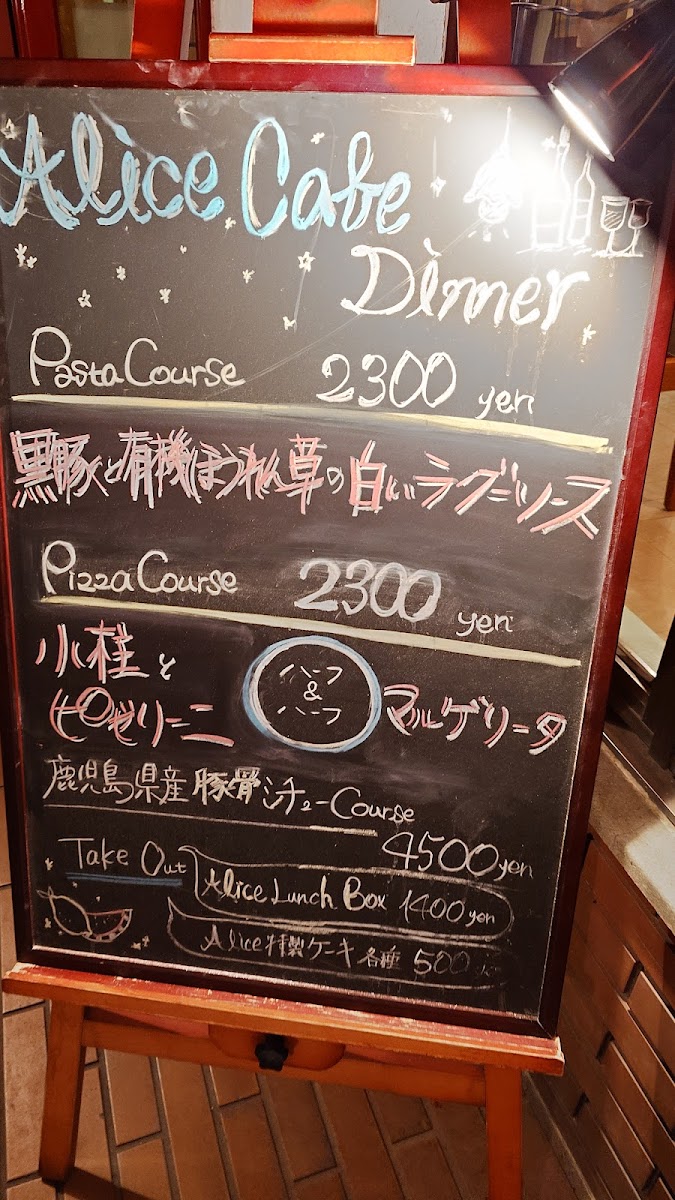 Alice Cafe
Dinner
Pasta Course 2300 yen
黒豚と有機ほうれん草の白いラグーソース
Pizza Course 2300 yen
小桂と
ピゼリーニ
ハーフ
&
ハーフ
マルゲリータ
鹿児島県産豚骨シチューCourse
4500yen
Take Out
Alice Lunch Box 1400yen
Alice特製ケーキ各種 500